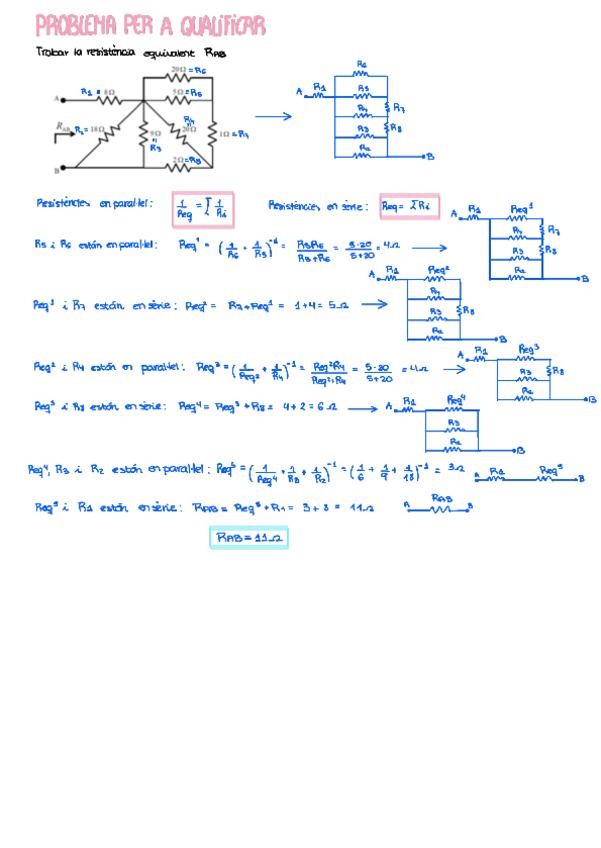 PROBLEMA PER A QUALIFICAR
Trobar la resistència equivalent RAB
20Ω = R6
R1 = 8Ω
5Ω = R5
A
RAB
R2 = 18Ω
9Ω
R3
R4
20Ω
1Ω = R7
B
2Ω = R8
R6
A R1 R5
R4 R7
R3 R8
R2
B
Resistències en paral·lel: 1/Req = Σ 1/Ri
Resistències en sèrie: Req = ΣRi
A R1 Req¹
R4 R7
R3 R8
R2 B
R5 i R6 están en paral·lel: Req¹ = (1/R6 + 1/R5)⁻¹ = R5R6/R5+R6 = 5·20/5+20 = 4Ω
A R1 Req²
R4
R3 R8
R2
B
Req¹ i R7 están en sèrie: Req² = R7+Req¹ = 1+4 = 5Ω
A R1 Req³
R3 R8
R2
B
Req² i R4 están en paral·lel: Req³ = (1/Req² + 1/R4)⁻¹ = Req²R4/Req²+R4 = 5·20/5+20 = 4Ω
Req³ i R8 están en sèrie: Req⁴ = Req³ + R8 = 4+2 = 6Ω
A R1 Req⁴
R3
R2
B
Req⁴, R3 i R2 están en paral·lel: Req⁵ = (1/Req⁴ + 1/R3 + 1/R2)⁻¹ = (1/6 + 1/9 + 1/18)⁻¹ = 3Ω
A R1 Req⁵ B
Req⁵ i R1 están en sèrie: RAB = Req⁵ + R1 = 3 + 8 = 11Ω
A RAB B
RAB = 11Ω